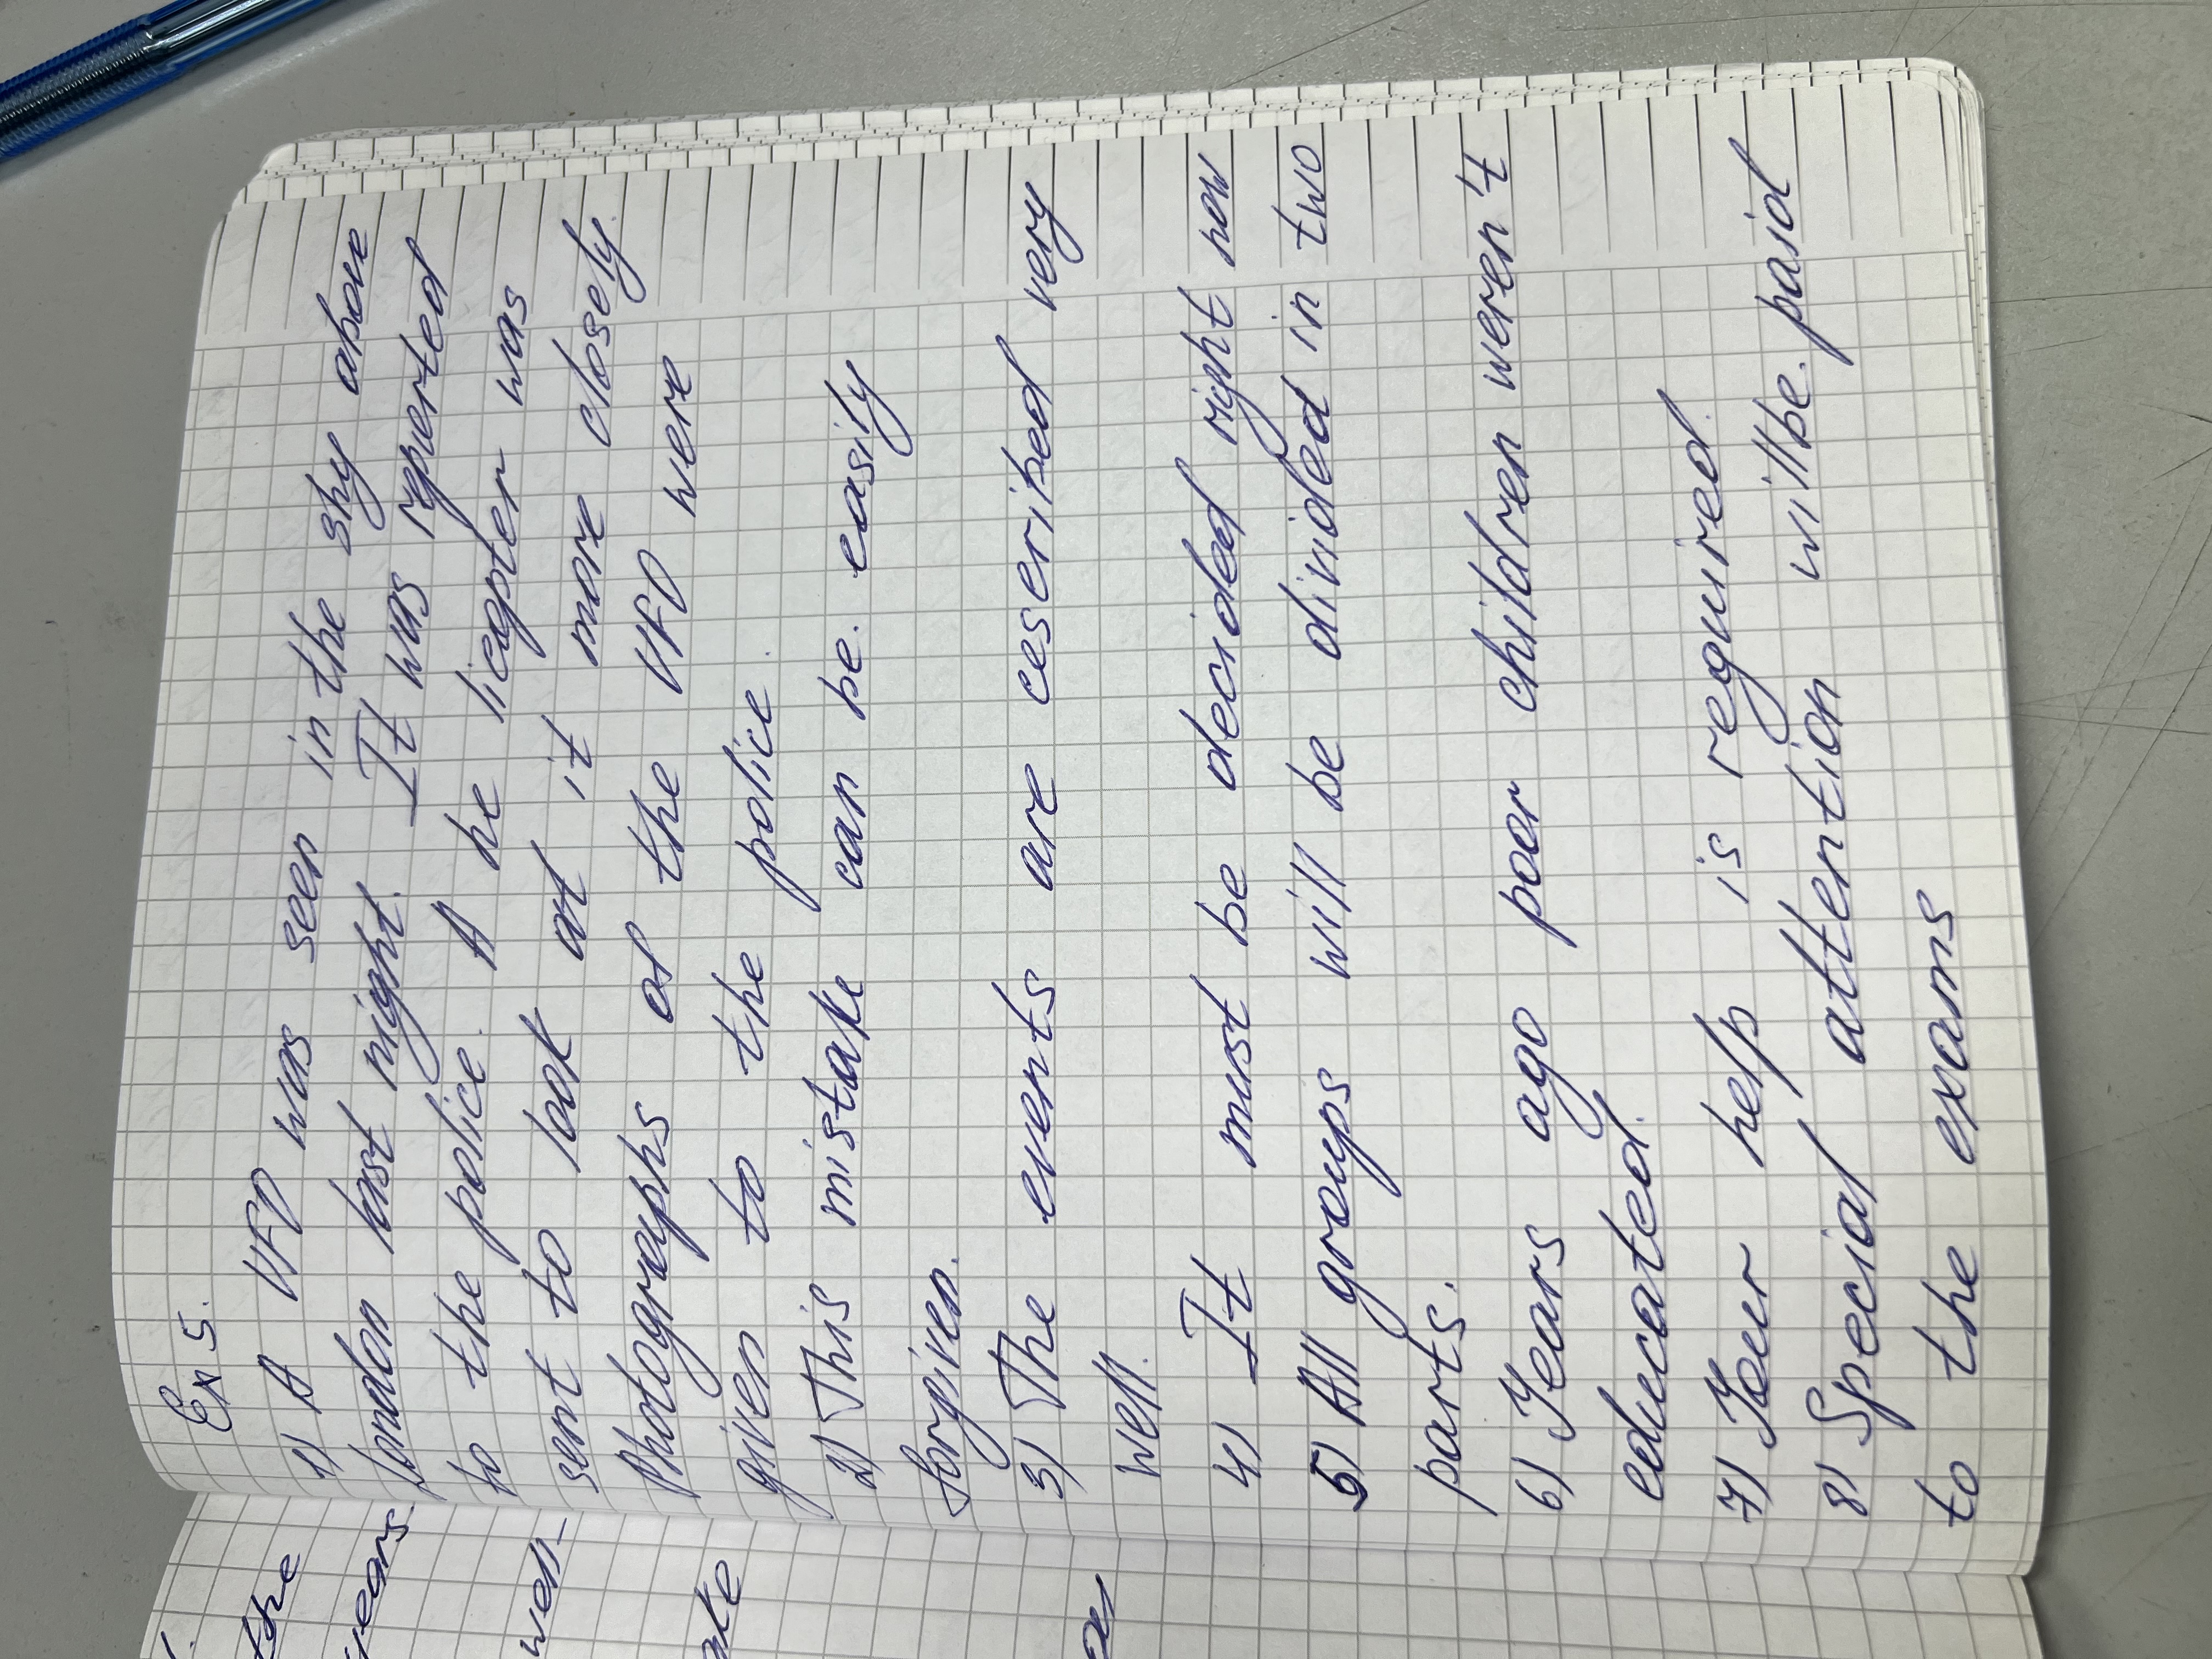 Ex 5.
1) A UFO was seen in the sky above
London last night. It was reported
to the police. A he licopter was
sent to look at it more closely.
Photographs of the UFO were
given to the police.
2) This mistake can be. easily
forgiven.
3) The events are cescribed very
well.
4) It must be decided right now
5) All groups will be divided in two
parts.
6) Years ago poor children weren't
educated.
7) Your help is required.
8) Special attention will be. paid
to the exams
the
years.
well-